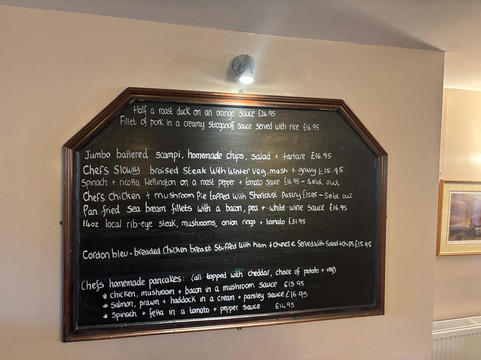 Half a roast duck on an orange sauce £16.95
Fillet of pork in a creamy stroganoff sauce served with rice £16.95
Jumbo battered scampi, homemade chips, salad + tartare £16.95
Chefs Slowly braised Steak with winter veg, mash + gravy £15.95
Spinach + ricotta wellington on a roast pepper + tomato sauce £16.95 - Sold out
Chefs Chicken + mushroom Pie topped with Shortcrust Pastry £15.95 - Sold out
Pan fried sea bream fillets with a bacon, pea + white wine sauce £16.95
16oz local rib-eye steak, mushrooms, onion rings + tomato £31.95
Cordon bleu - breaded Chicken breast Stuffed with ham + cheese Served with Salad + chips £15.95
Chefs homemade pancakes: (all topped with cheddar, choice of potato + veg)
* chicken, mushroom + bacon in a mushroom sauce £15.95
* Salmon, prawn + haddock in a cream + parsley sauce £16.95
* Spinach + fetta in a tomato + pepper sauce £14.95